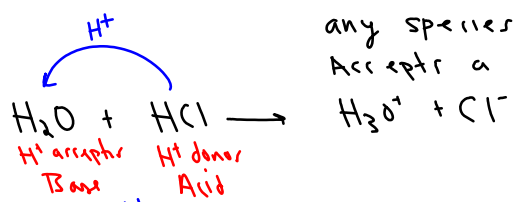 any species
Accepts a
H⁺
H₂O + HCl ⟶ H₃O⁺ + Cl⁻
H⁺ acceptor H⁺ donor
Base Acid